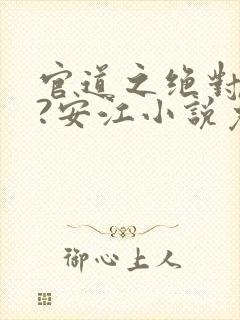 官道之绝对
?安江小說
御心上人